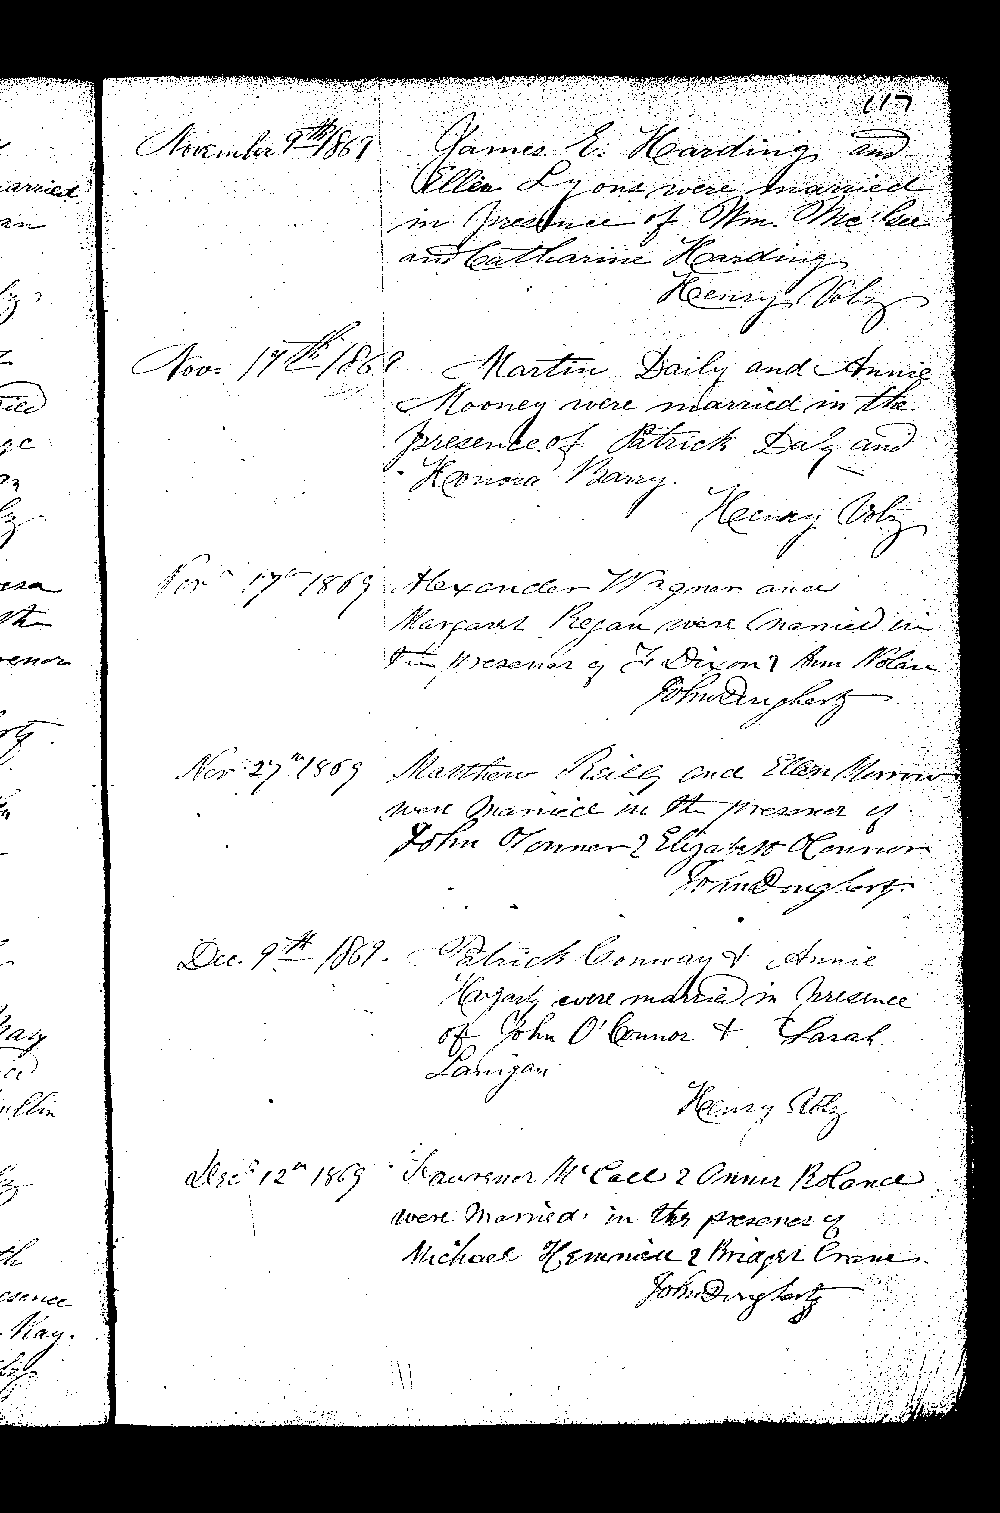 117
November 9th 1869 James E. Harding and
Ellen Lyons were married
in presence of Wm. McGee
and Catharine Harding
Henry Volz
Nov. 17th 1869 Martin Daily and Annie
Mooney were married in the
presence of Patrick Daly and
Honora Barry.
Henry Volz
Nov 17th 1869 Alexander Wagner and
Margaret Regan were Married in
the presence of F. Dixon & Ann Nolan
John Dougherty
Nov 27th 1869 Matthew Reilly and Ellen Morrow
were Married in the presence of
John O'Connor & Elizabeth O'Connor
John Dougherty
Dec. 9th 1869. Patrick Conway & Annie
Hagarty were married in presence
of John O'Connor & Sarah
Lanigan
Henry Volz
Dec 12th 1869 Lawrence McCall & Annie Boland
were Married in the presence of
Michael & Bridget Crane.
John Dougherty